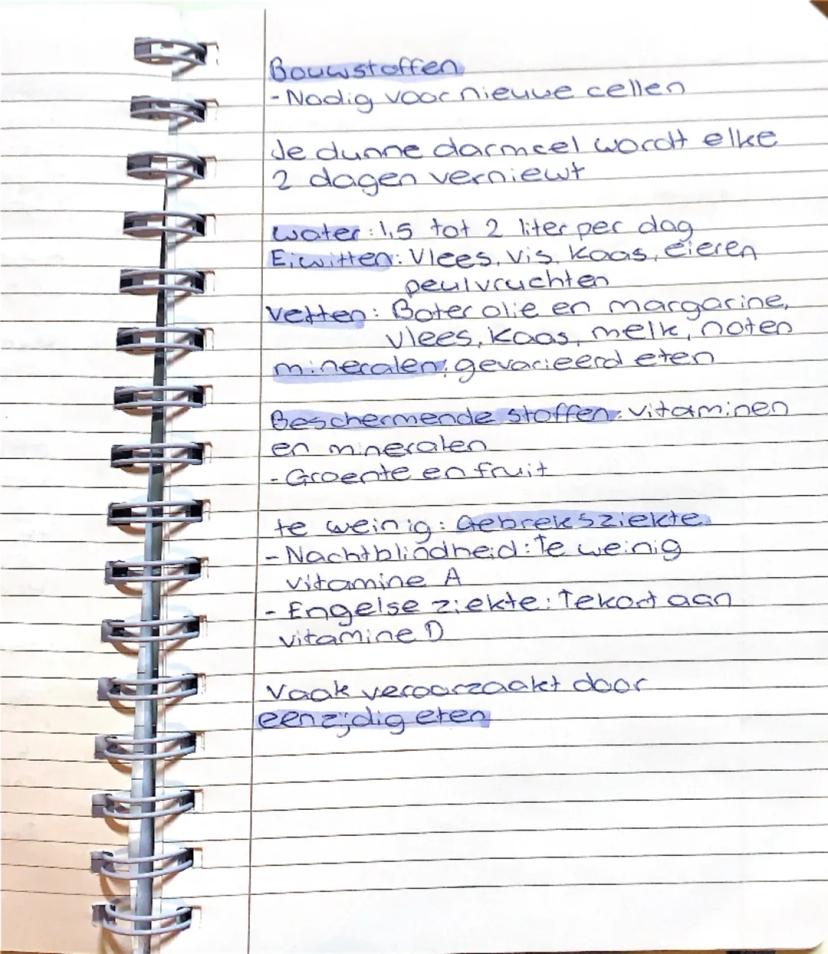 Bouwstoffen
- Nodig voor nieuwe cellen
Je dunne darmcel wordt elke
2 dagen verniewt
water: 1,5 tot 2 liter per dag
Eiwitten: Vlees, vis, kaas, eieren
peulvruchten
vetten: Boter olie en margarine,
vlees, kaas, melk, noten
mineralen: gevarieerd eten
Beschermende stoffen: vitaminen
en mineralen
- Groente en fruit
te weinig: Gebreksziekte
- Nachtblindheid: Te weinig
vitamine A
- Engelse ziekte: Tekort aan
vitamine D
Vaak veroorzaakt door
eenzijdig eten